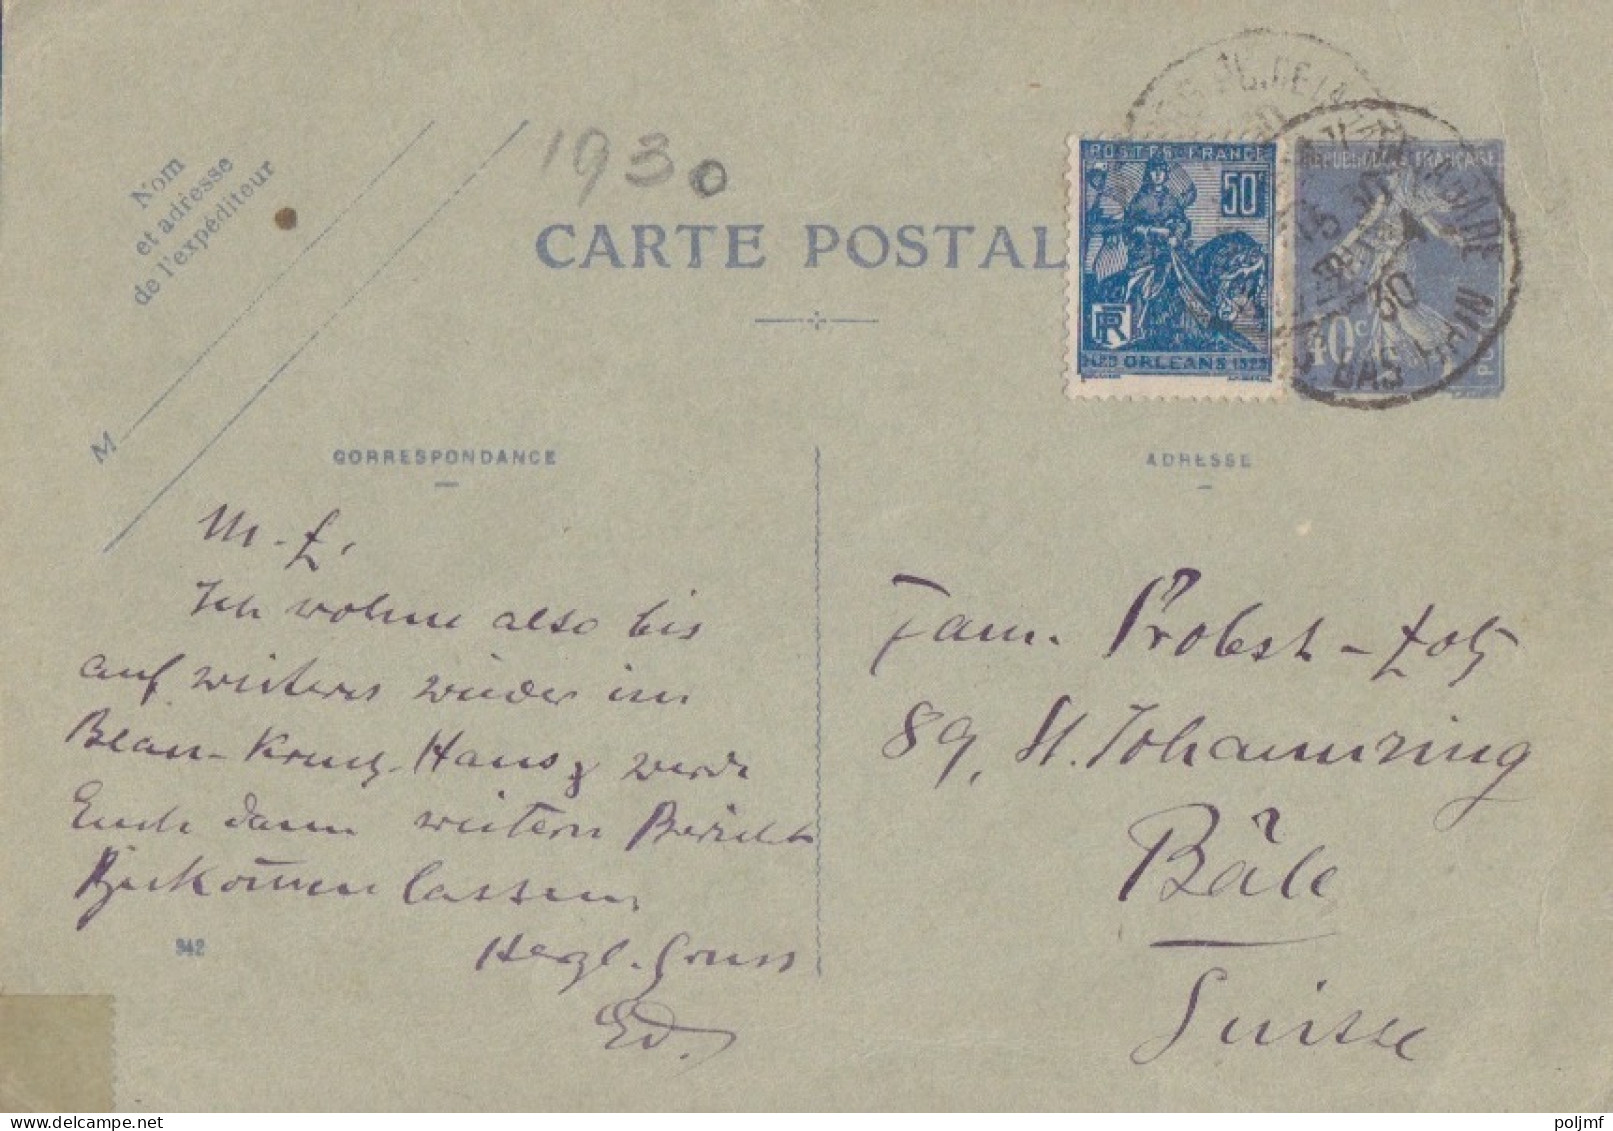 Nom
et adresse
de l'expéditeur
M
1930
CARTE POSTAL
POSTES FRANCE
50c
RF
ORLEANS
REPUBLIQUE FRANÇAISE
40c
30
BAS RHIN
CORRESPONDANCE
ADRESSE
M. L.
Ich wohne also bis
auf weiteres wieder im
Blau-Kreuz-Haus & werde
Euch dann weitern Bericht
zukommen lassen.
Herzl. Gruss
Ed.
342
Fam. Probst-Lotz
89, St. Johannring
Bâle
Suisse
poljmf